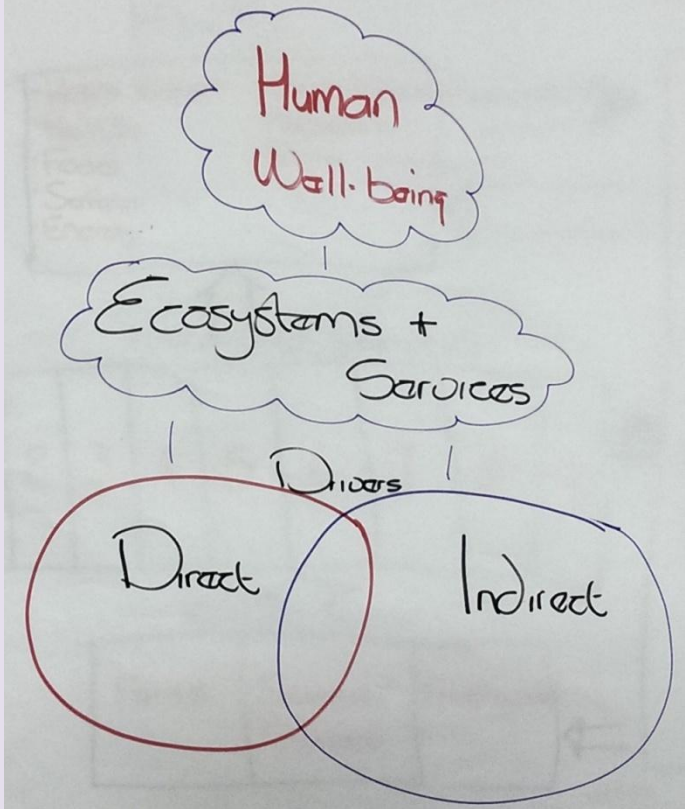 Human
Well-being
Ecosystems +
Services
Drivers
Direct
Indirect